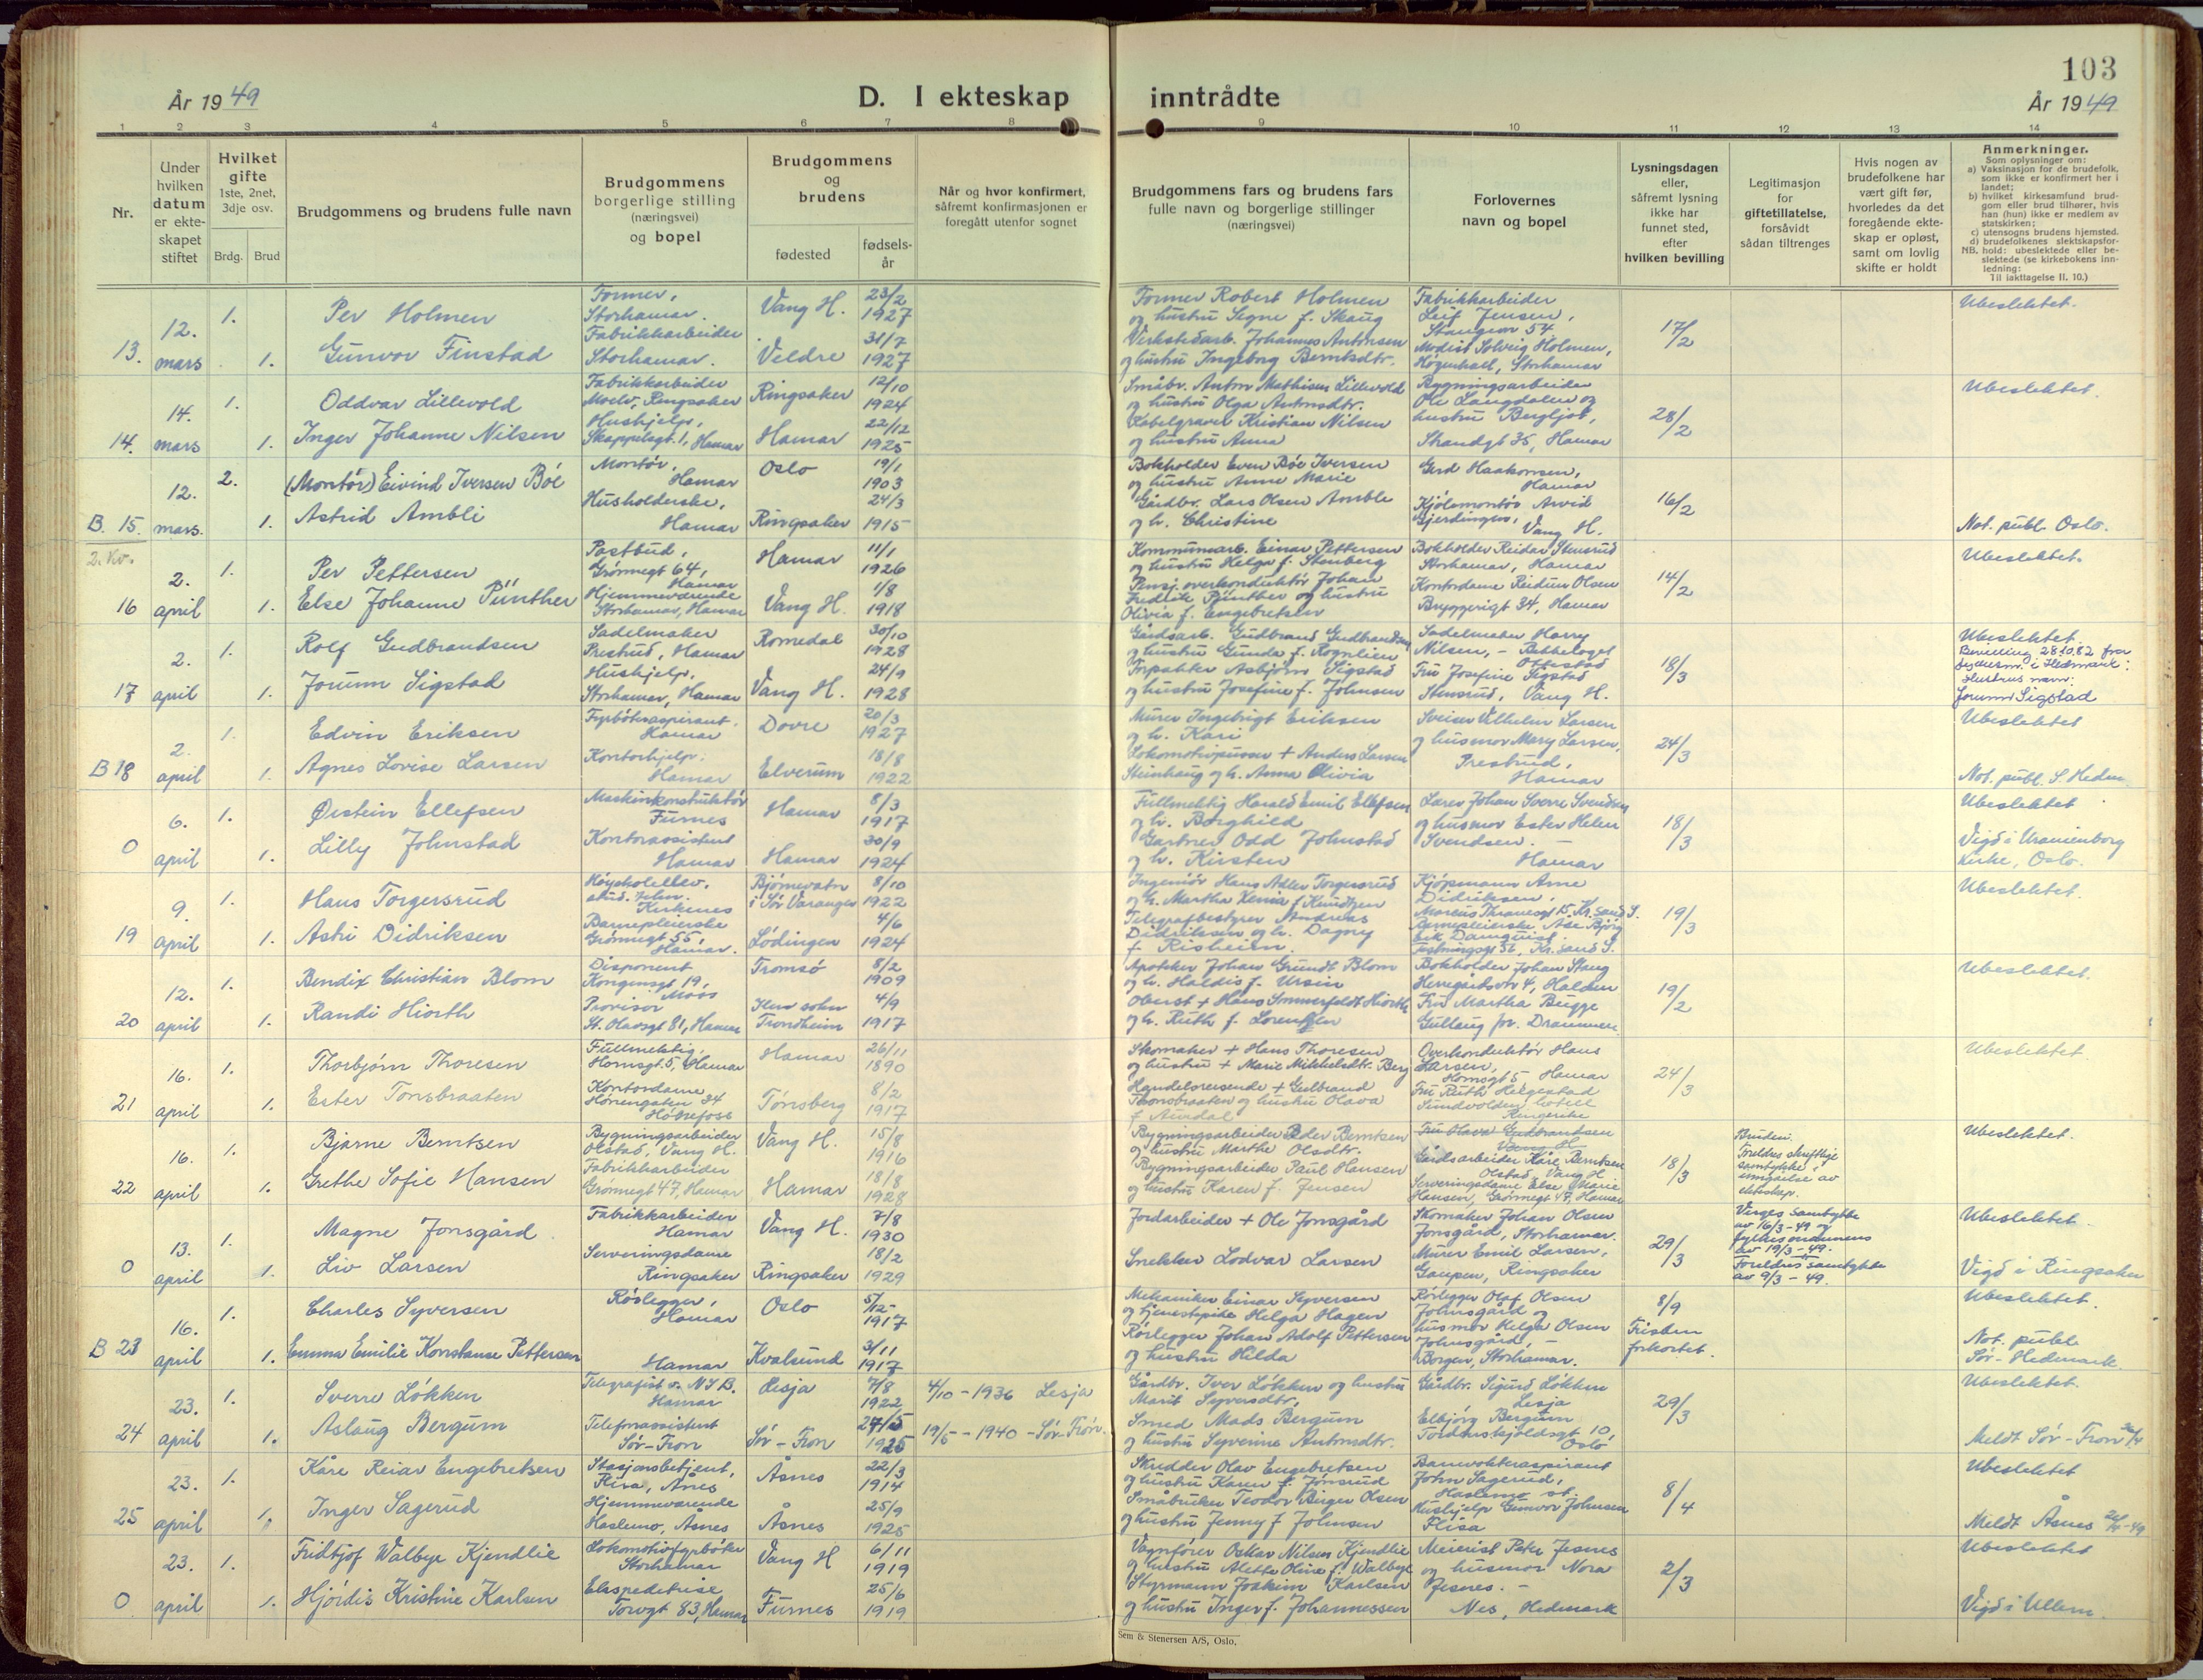 103
År 1949
D. I ekteskap inntrådte
År 1949
1 2 3 4 5 6 7 8 9 10 11 12 13 14
Nr.
Under hvilken datum er ekte-skapet stiftet
Hvilket gifte
1ste, 2net, 3dje osv.
Brdg. Brud
Brudgommens og brudens fulle navn
Brudgommens borgerlige stilling (næringsvei) og bopel
Brudgommens og brudens
fødested
fødsels-år
Når og hvor konfirmert, såfremt konfirmasjonen er foregått utenfor sognet
Brudgommens fars og brudens fars fulle navn og borgerlige stillinger (næringsvei)
Forlovernes navn og bopel
Lysningsdagen eller, såfremt lysning ikke har funnet sted, efter hvilken bevilling
Legitimasjon for giftetillatelse, forsåvidt sådan tiltrenges
Hvis nogen av brudefolkene har vært gift før, hvorledes da det foregående ekte-skap er opløst, samt om lovlig skifte er holdt
Anmerkninger.
Som oplysninger om:
a) Vaksinasjon for de brudefolk, som ikke er konfirmert her i landet;
b) hvilket kirkesamfund brud-gom eller brud tilhører, hvis han (hun) ikke er medlem av statskirken;
c) utensogns brudens hjemsted.
d) brudefolkenes slektskapsfor-hold: ubeslektede eller be-slektede (se kirkebokens inn-ledning:
NB. Til iakttagelse II. 10.)
13. 12. mars 1. 1.
Per Holmen
Former, Storhamar.
Vang H. 23/2 1927
Gunvor Finstad
Fabrikkarbeider Storhamar.
Veldre 31/7 1927
Former Robert Holmen og hustru Signe f. Skaug
Verkstedarb. Johannes Antonsen og hustru Ingeborg Berntsdtr.
Fabrikkarbeider Leif Jensen, Stangevn 54.
Modist Solveig Holmen, Storhamar
17/2
Ubeslektet.
14. 14. mars 1. 1.
Oddvar Lillevold
Fabrikkarbeider Moelv, Ringsaker
Ringsaker 12/10 1924
Inger Johanne Nilsen
Hushjelp, Skappelsgt. 1, Hamar
Hamar 22/12 1925
Småbr. Anton Mathisen Lillevold og hustru Olga Antonsdtr.
Kabelgraver Kristian Nilsen og hustru Anna
Bygningsarbeider Ole Langdalen og hustru Bergljot, Strandgt 35, Hamar
28/2
Ubeslektet.
B. 15. 12. mars. 2. 1.
(Montör) Eivind Iversen Böe
Montör, Hamar
Oslo 19/1 1903
Astrid Ambli
Husholderske, Hamar
Ringsaker 24/3 1915
Bokholder Even Böe Iversen og hustru Anne Marie
Gårdbr. Lars Olsen Amble og h. Christine
Gerd Haakonsen, Hamar
Kjölemontör Arvid Gjerdingen, Vang H.
16/2
Not. publ. Oslo.
2. Kv.
16 2. april 1. 1.
Per Pettersen
Postbud, Grönnegt 64, Hamar
Hamar 11/1 1926
Else Johanne Pünther
Hjemmeværende Storhamar, Hamar
Vang H. 1/8 1918
Kommunearb. Einar Pettersen og hustru Helga f. Stenberg
Pensj. overkonduktör Johan Fredrik Pünther og hustru Olivia f. Engebretsen
Bokholder Reidar Stensrud Storhamar, Hamar
Kontordame Reidun Olsen Bryggerigt 34, Hamar
14/2
Ubeslektet.
17 2. april 1. 1.
Rolf Gudbrandsen
Sadelmaker Prestrud, Hamar
Romedal 30/10 1928
Jorunn Sigstad
Hushjelp, Storhamar, Hamar
Vang H. 24/9 1928
Gårdsarb. Gudbrand Gudbrandsen og hustru Gunda f. Rognlien
Asbjörn Sigstad og hustru Josefine f. Johnsen
Sadelmaker Harry Nilsen, - Bekkelaget Ottestad
Fru Josefine Sigstad Stensrud, Vang H.
18/3
Ubeslektet.
Bevilling 28.10.82 fra fylkesm. i Hedmark:
Hustrus navn:
Jorunn Sigstad
B 18 2. april 1. 1.
Edvin Eriksen
Fyrböteraspirant. Hamar
Dovre 20/3 1927
Agnes Lovise Larsen
Kontorhjelp. Hamar
Elverum 18/8 1922
Murer Ingebrigt Eriksen og h. Kari
Lokomotivpusser + Anders Larsen Steinhaug og h. Anna Olivia
Sveiser Vilhelm Larsen og husmor Mary Larsen, Prestrud, Hamar
24/3
Ubeslektet
Not. publ. S. Hedm.
0 6. april 1. 1.
Öistein Ellefsen
Maskinkonstruktör Furnes
Hamar 8/3 1917
Lilly Johnstad
Kontorassistent Hamar
Hamar 30/9 1924
Fullmektig Harald Emil Ellefsen og h. Borghild
Gartner Odd Johnstad og h. Kirsten
Lærer Johan Sverre Svendsen og husmor Ester Helen Svendsen. - Hamar
18/3
Ubeslektet
Vigd i Uranienborg kirke, Oslo.
19 9. april 1. 1.
Hans Torgersrud
Höyskoleelev. stud. techn. Kirkenes
Björnevatn i Sör Varanger 8/10 1922
Astri Didriksen
Barnepleierske Grönnegt 55, Hamar.
Lödingen 4/6 1924
Ingeniör Hans Adler Torgersrud og h. Martha Xenia f. Knudtzen
Telegrafbestyrer Andreas Didriksen og h. Dagny f. Risheim.
Kjöpmann Arne Didriksen, Marcus Thranesgt 15, Kr.sand S.
Barnepleierske Åse Björg Eek Danquist. Festningsgt 56, Kr.sand S.
19/3
Ubeslektet.
20 12. april 1. 1.
Bendix Christian Blom
Disponent Kongensgt 19, Moss
Tromsö 8/2 1909
Randi Hiorth
Provisor St. Olavsgt 81, Hamar
Ilen sokn Trondheim 4/9 1917
Apoteker Johan Grundt Blom og h. Haldis f. Ursin
Oberst + Hans Sommerfeldt Hiorth og h. Ruth f. Lorentzen
Bokholder Johan Stang Herregårdsvn 4, Halden
Fru Martha Bugge Gullaug pr. Drammen.
19/2
Ubeslektet.
21 16. april 1. 1.
Thorbjörn Thoresen
Fullmektig. Hornsgt. 5, Hamar
Hamar 26/11 1890
Ester Tonsbraaten
Kontordame Hönengaten 34 Hönefoss
Tönsberg 8/2 1917
Skomaker + Hans Thoresen og hustru + Marie Mikkelsdtr. Berg
Handelsreisende + Gulbrand Thonsbraaten og hustru Olava f. Aurdal
Overkonduktör Hans Larsen, Hornsgt 5 Hamar
Fru Ruth Helgestad Sundvolden hotell Ringerike
24/3
Ubeslektet.
22 16. april 1. 1.
Bjarne Berntsen
Bygningsarbeider Olstad, Vang H.
Vang H. 15/8 1916
Grethe Sofie Hansen
Fabrikkarbeider Grönnegt 47, Hamar
Hamar 18/8 1928
Bygningsarbeider Peder Berntsen og hustru Marthe Olsdtr.
Bygningsarbeider Paul Hansen og hustru Karen f. Jensen
Fru Olava Gudbrandsen Vang H.
Gårdsarbeider Kåre Berntsen Olstad, Vang H
Serveringsdame Else Marie Hansen, Grönnegt 47, Hamar
18/3
Bruden. Foreldres skriftlige samtykke i inngåelse av ekteskap.
Ubeslektet.
0 13. april 1. 1.
Magne Jonsgård.
Fabrikkarbeider Hamar
Vang H. 7/8 1930
Liv Larsen
Serveringsdame Ringsaker
Ringsaker 18/2 1929
Jordarbeider + Ole Jonsgård
Snekker Lodvar Larsen
Skomaker Johan Olsen Jonsgård, Storhamar.
Murer Emil Larsen, Gaupen, Ringsaker
29/3
Verges samtykke av 16/3-49 og fylkesmannens av 19/3-49.
Foreldres samtykke av 9/3-49.
Ubeslektet.
Vigd i Ringsaker
B 23 16. april 1. 1.
Charles Syversen
Rörlegger, Hamar
Oslo 5/12 1917
Emma Emilie Konstanse Pettersen
Hamar
Kvalsund 3/11 1917
Mekaniker Einar Syversen og tjenestepike Helga Hagen
Rörlegger Johan Adolf Pettersen og hustru Hilda
Rörlegger Olaf Olsen Johnsgård og husmor Helga Olsen Johnsgård, - Borgen, Storhamar.
8/9
Fristen forkortet.
Ubeslektet.
Not. publ. Sör-Hedmark
24 23. april 1. 1.
Sverre Lökken
Telegrafist v. NSB. Hamar
Lesja 7/8 1922
4/10 - 1936 Lesja
Aslaug Bergum
Telefonassistent Sör-Fron
Sör-Fron 27/5 1925
19/5 - 1940 - Sör-Fron.
Gårdbr. Iver Lökken og hustru Marit Syversdtr.
Smed Mads Bergum og hustru Syverine Antonsdtr.
Gårdbr. Sigurd Lökken Lesja
Elbjörg Bergum Tordenskjoldsgt 10, Oslo
29/3
Ubeslektet.
Meldt Sör-Fron 30/4
25 23. april 1. 1.
Kåre Reiar Engebretsen
Stasjonsbetjent, Flisa, Åsnes
Åsnes 22/3 1914
Inger Sagerud
Hjemmeværende Haslemo, Åsnes
Åsnes 25/9 1925
Skredder Olav Engebretsen og hustru Karen f. Jonsrud
Småbruker Teodor Birger Olsen og hustru Jenny f. Johnsen
Banevokteraspirant John Sagerud, Haslemo st.
Hushjelp Gunvor Johnsen Flisa
8/4
Ubeslektet
Meldt Åsnes -49
0 23. april 1. 1.
Fridtjof Walbye Kjendlie
Lokomotivfyrböter Storhamar
Vang H 6/11 1919
Hjördis Kristine Karlsen
Ekspeditrise Torvgt 83, Hamar
Furnes 25/6 1919
Vognförer Oskar Nilsen Kjendlie og hustru Alette Oline f. Walbye
Styrmann Joakim Karlsen og hustru Inger f. Johannessen
Meierist Peter Jesnes og husmor Nora Jesnes. - Nes, Hedmark
2/3
Ubeslektet
Vigd i Ullern.
Sem & Stenersen A/S, Oslo.